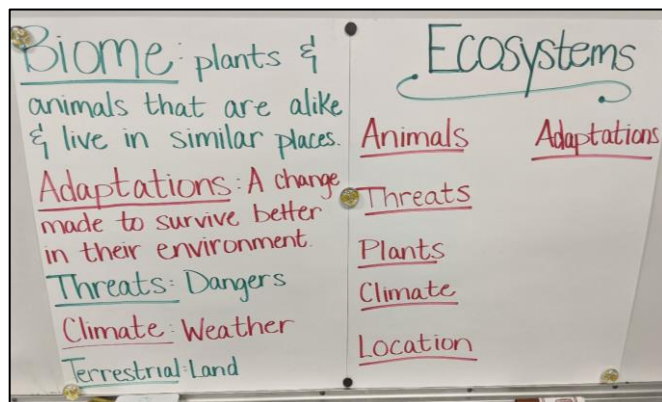 Biome: plants &
animals that are alike
& live in similar places.
Adaptations: A change
made to survive better
in their environment.
Threats: Dangers
Climate: Weather
Terrestrial: Land
Ecosystems
Animals Adaptations
Threats
Plants
Climate
Location